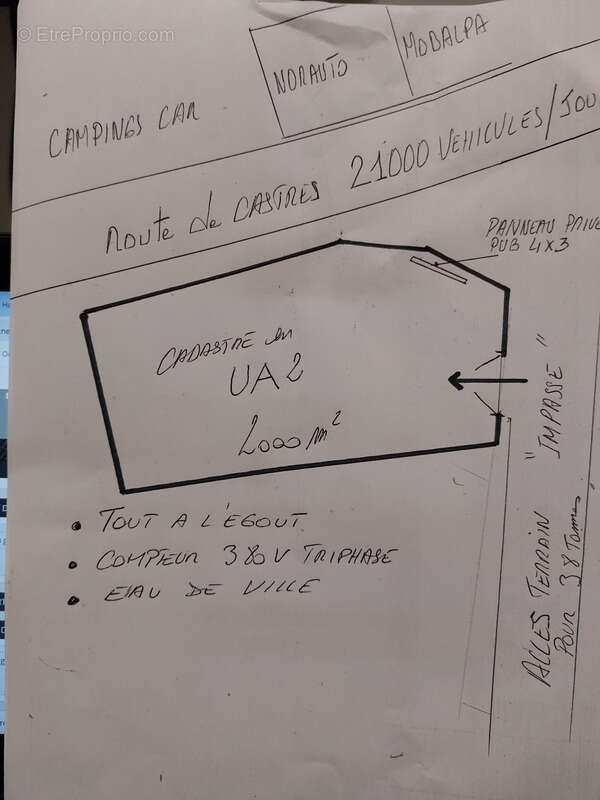 © EtreProprio.com
NORAUTO
MOBALPA
CAMPINGS CAR
ROUTE de CASTRES 21000 VEHICULES/JOU
PANNEAU PRIVE
PUB 4x3
CADASTRÉ en
UA2
2000 m²
"IMPASSE"
ALLES TERRAIN
POUR 38 Tonnes
• TOUT A L'ÉGOUT
• COMPTEUR 380V TRIPHASE
• EAU DE VILLE